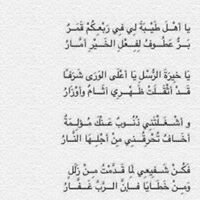 يا أهْلَ طَيْبَةَ لِي فِي رَبْعِكُمْ قَمَرٌ
بَرٌّ عَطُوفٌ لِفِعْلِ الخَيْرِ أَمَّارُ
يا خِيرَةَ الرُّسْلِ يا أعْلَى الوَرَى شَرَفًا
قَدْ أثْقَلَتْ ظَهْرِي آثَامٌ وَأَوْزَارُ
و أشْغَلَتْنِي ذُنُوبٌ عَنْكَ مُؤْلِمَةٌ
أخَافُ تُحْرِقُنِي مِنْ أجْلِهَا النَّارُ
فَكُنْ شَفِيعِي لِمَا قَدَّمْتُ مِنْ زَلَلٍ
وَمِنْ خَطَايَا فَإِنَّ الرَّبَّ غَفَّارُ